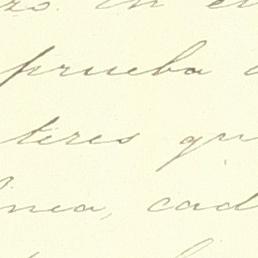 prueba
teres qu
nea, cad